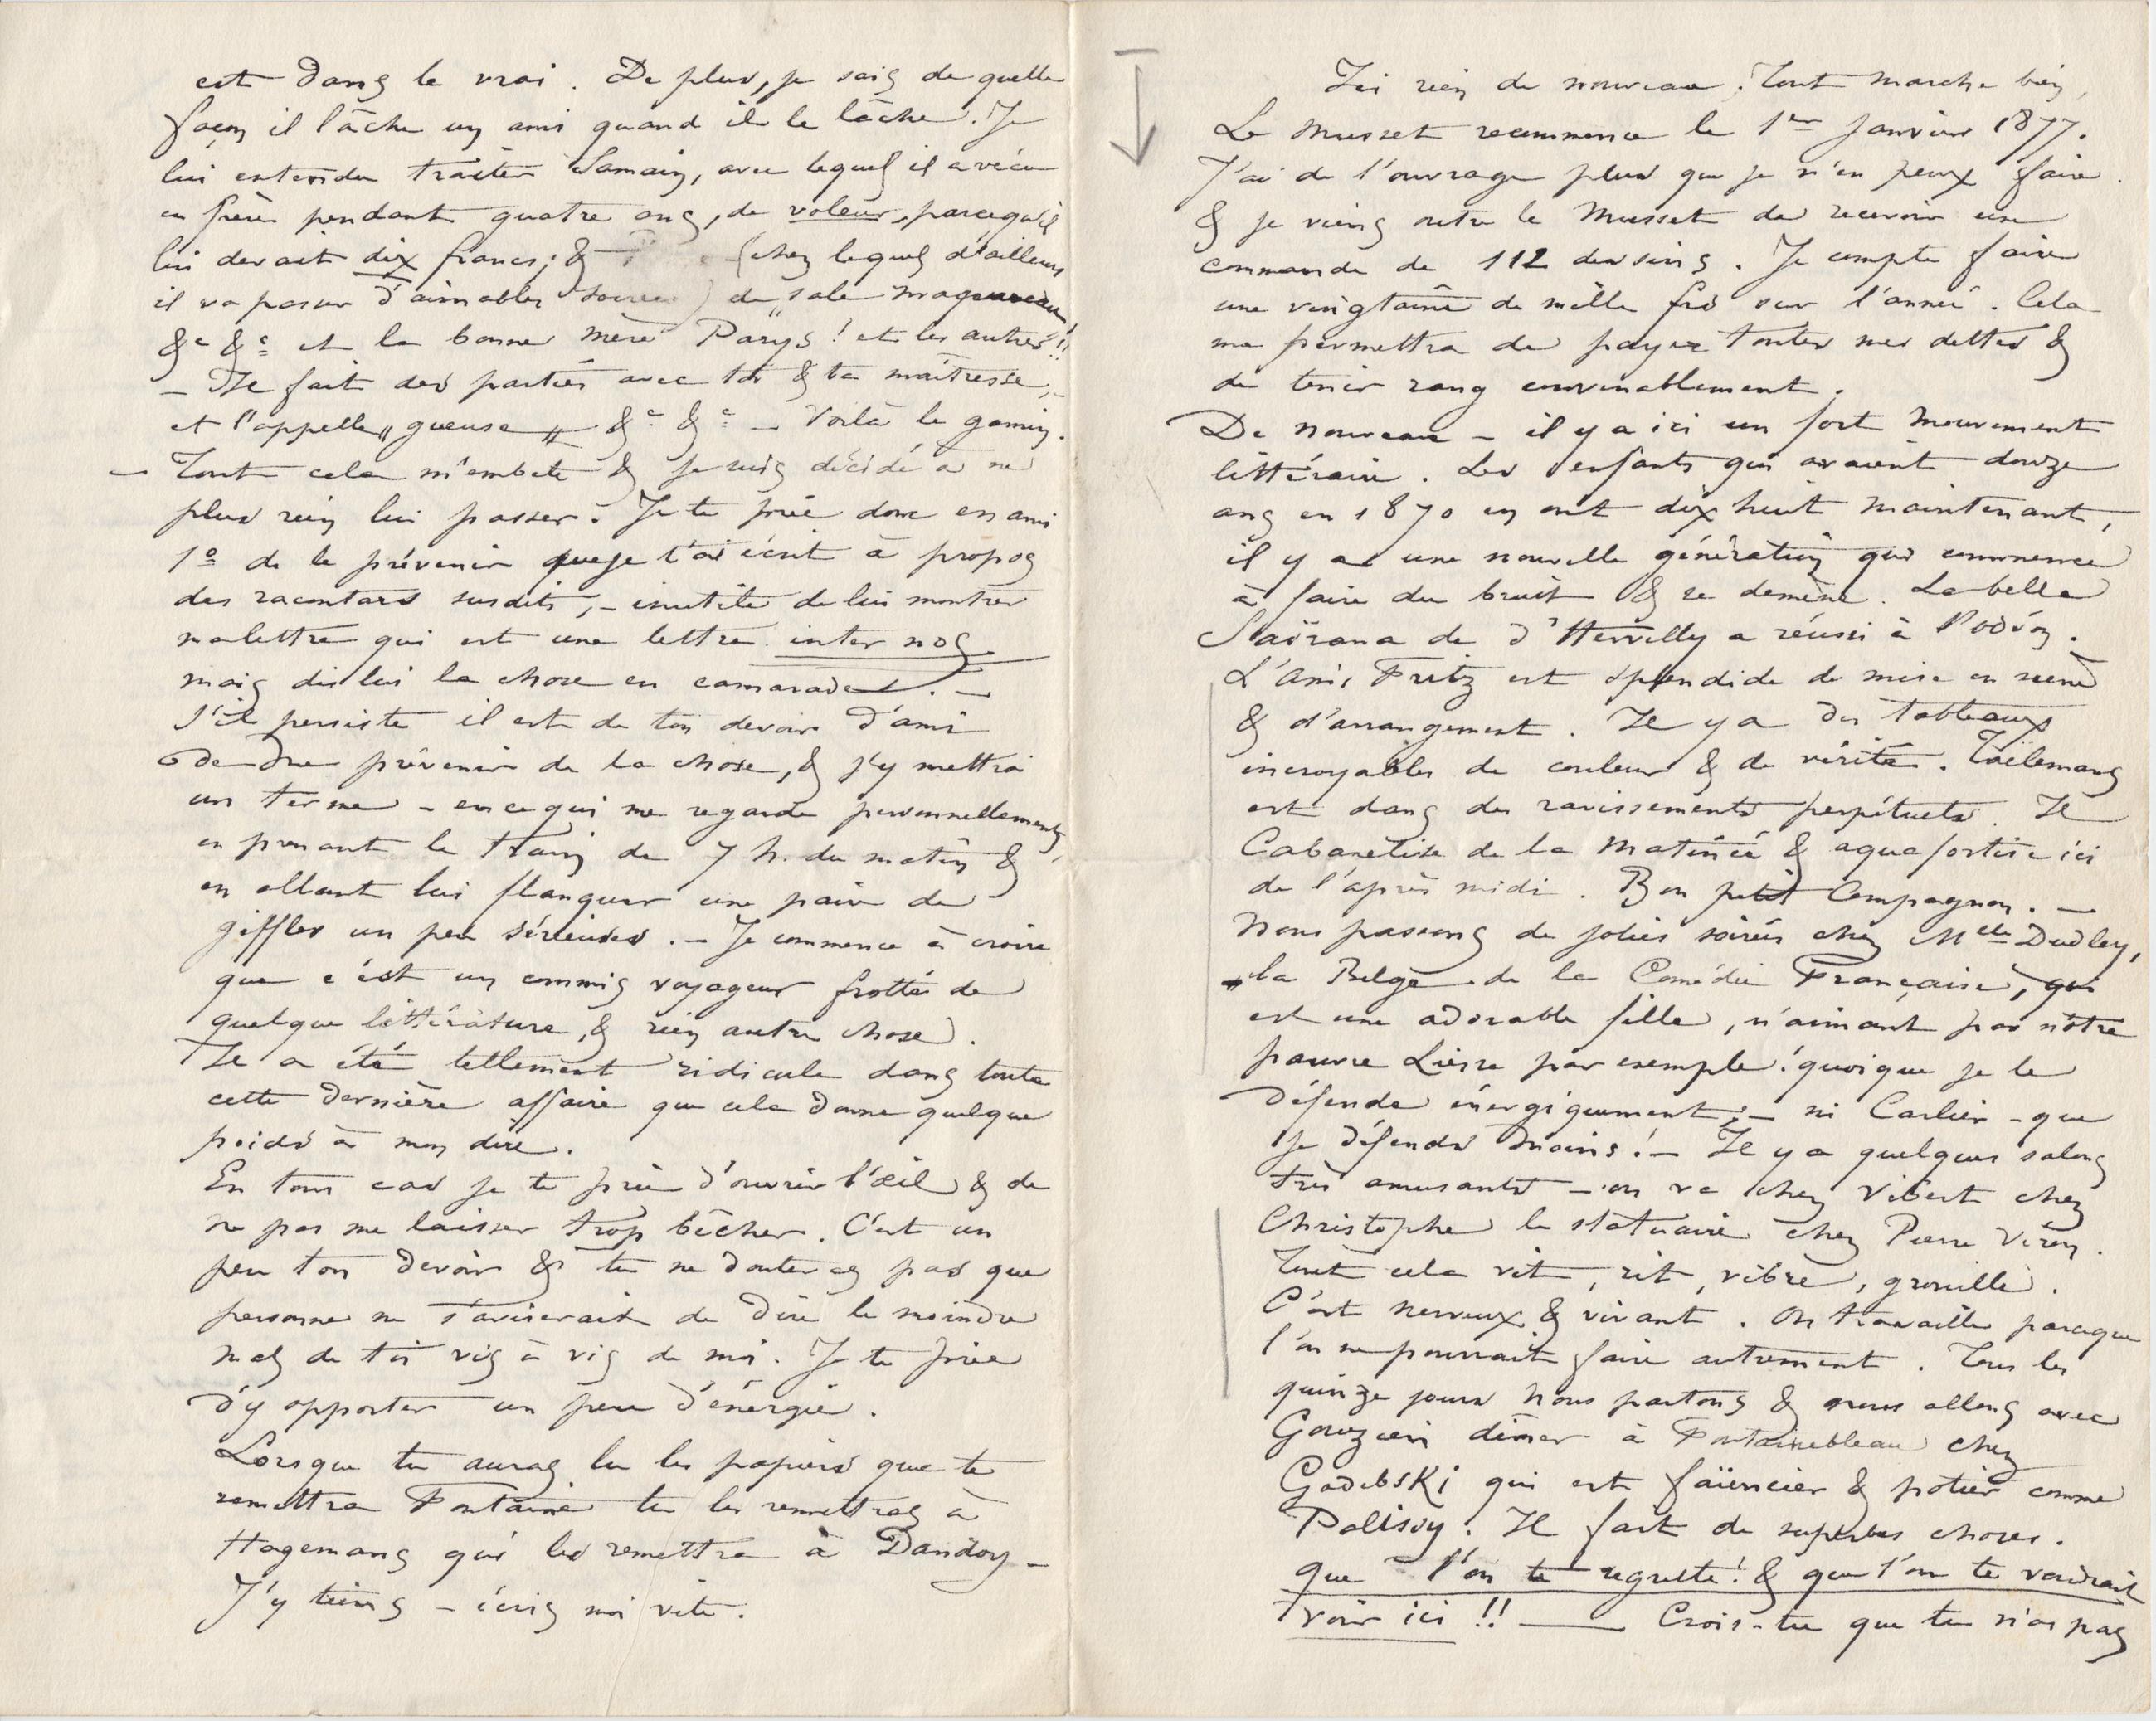 est dans le vrai. De plus, je sais de quelle
façon il lâche un ami quand il le lâche. Je
lui entendu traiter Samain, avec lequel il a vécu
en frère pendant quatre ans, de voleur, parcequ'il
lui devait dix francs; & (chez lequel d'ailleurs
il va passer d'aimables soirées) de "sale maquereau"
&c &c et la bonne mère Parys! et les autres!!
— Il fait des parties avec toi & ta maîtresse,
et l'appelle "gueuse" &c &c — Voilà le gamin.
— Tout cela m'embete & je suis décidé à ne
plus rien lui passer. Je te prie donc en ami
1o de le prévenir que je t'ai écrit à propos
des racontars susdits, – inutile de lui montrer
ma lettre qui est une lettre inter nos
mais dis lui la chose en camarade. —
S'il persiste il est de ton devoir d'ami
de me prévenir de la chose, & j'y mettrai
un terme – en ce qui me regarde personnellement,
en prenant le train de 7 h. du matin &
en allant lui flanquer une paire de
giffles un peu sérieuses. – Je commence à croire
que c'est un commis voyageur frotté de
quelque littérature, & rien autre chose.
Il a été tellement ridicule dans toute
cette dernière affaire que cela donne quelque
poids à mon dire.
En tous cas je te prie d'ouvrir l'œil & de
ne pas me laisser trop bêcher. C'est un
peu ton devoir & tu ne doutes pas que
personne ne s'aviserait de dire le moindre
mal de toi vis à vis de moi. Je te prie
d'y apporter un peu d'énergie.
Lorsque tu auras lu les papiers que te
remettra Fontaine tu les remettras à
Hagemans qui les remettra à Dandoy –
J'y tiens – écris moi vite.
Ici rien de nouveau. Tout marche bien,
Le Musset recommence le 1er Janvier 1877.
J'ai de l'ouvrage plus que je n'en peux faire.
& je viens outre le Musset de recevoir une
commande de 112 dessins. Je compte faire
une vingtaine de mille frs sur l'année. Cela
me permettra de payer toutes mes dettes &
de tenir rang convenablement.
De nouveau – il y a ici un fort mouvement
littéraire. Les enfants qui avaient douze
ans en 1870 en ont dix huit maintenant,
il y a une nouvelle génération qui commence
à faire du bruit & se démène. La belle
Saïnara de d'Hervilly a réussi à l'Odéon.
L'Ami Fritz est splendide de mise en scène
& d'arrangement. Il y a des tableaux
incroyables de couleur & de vérité. Taelemans
est dans des ravissements perpétuels. Il
Cabanelise de la Matinée & aquafortise ici
de l'après midi. Bon petit Compagnon. —
Nous passons de jolies soirées chez Melle Dudley,
la Belge de la Comédie Française, qui
est une adorable fille, n'aimant pas nôtre
pauvre Liesse par exemple! quoique je le
défende énergiquement; – ni Carlier – que
je défends moins! – Il y a quelques salons
très amusants – on va chez Vibert chez
Christophe le statuaire chez Pierre Véron.
Tout cela vit, rit, vibre, grouille.
C'est nerveux & vivant. On travaille parceque
l'on ne pourrait faire autrement. Tous les
quinze jours nous partons & nous allons avec
Gouzien dîner à Fontainebleau chez
Godebski qui est faïencier & potier comme
Palissy. Il fait de superbes choses.
que l'on te regrette! & que l'on te voudrait
voir ici!! —— Crois-tu que tu n'as pas